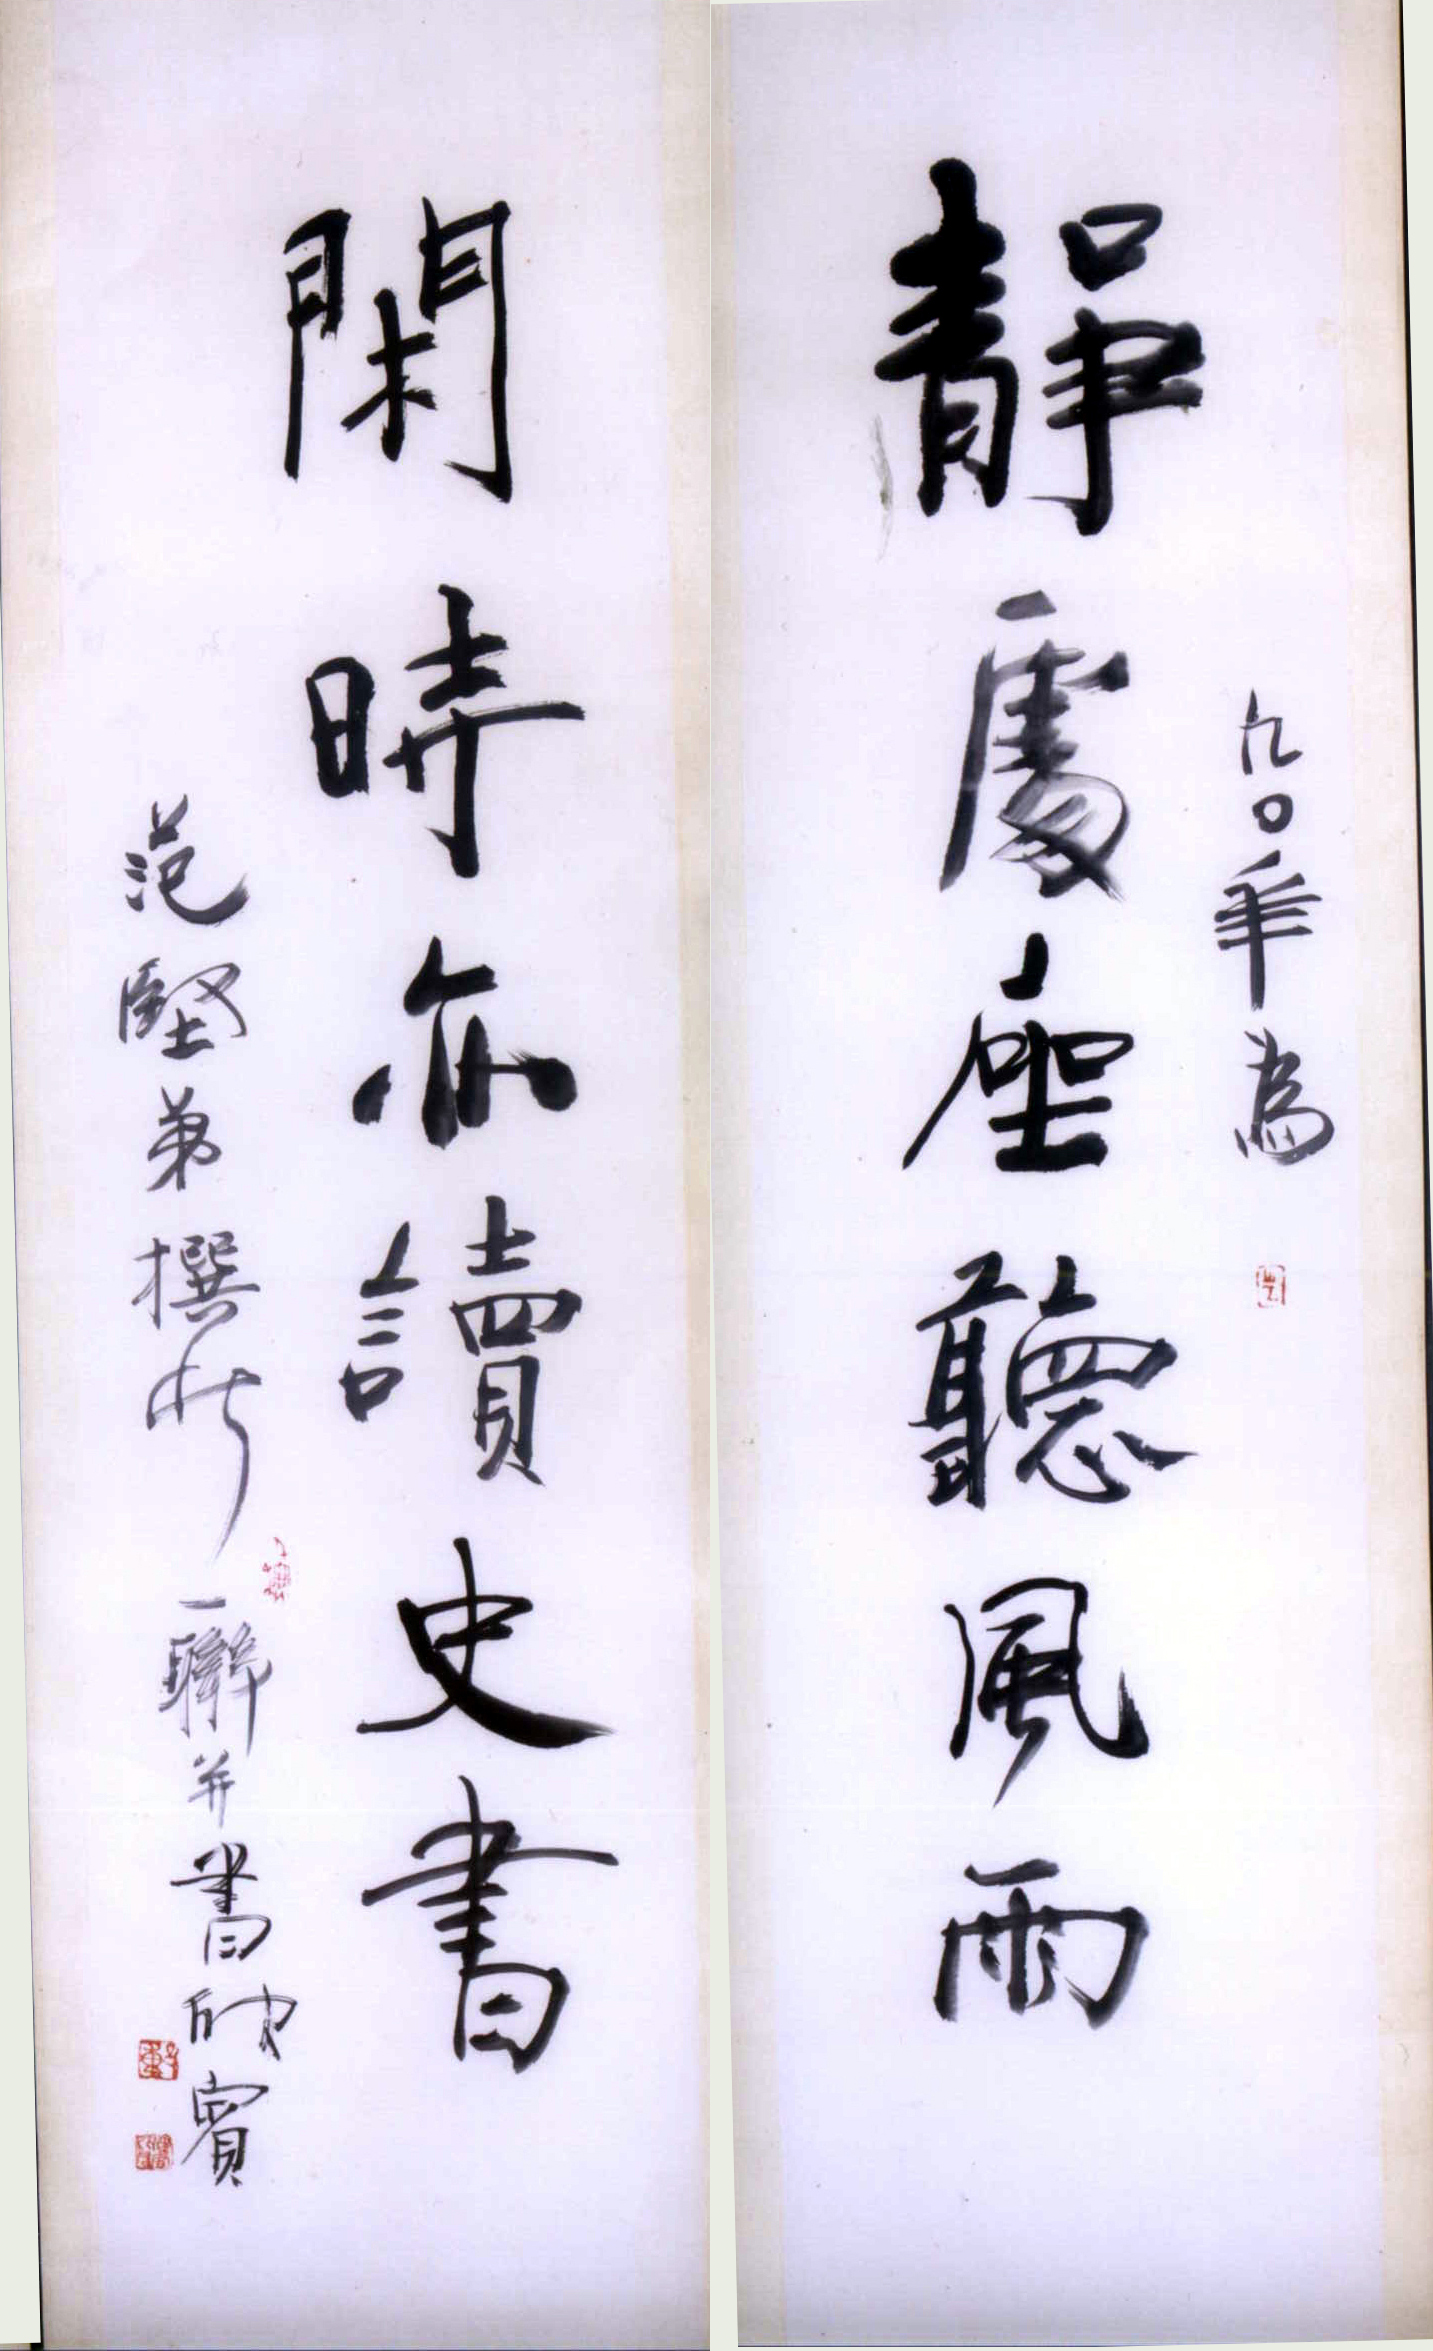 九〇年為
靜處座聽風雨
閑時亦讀史書
范堅弟撰此
一聯并書 賓